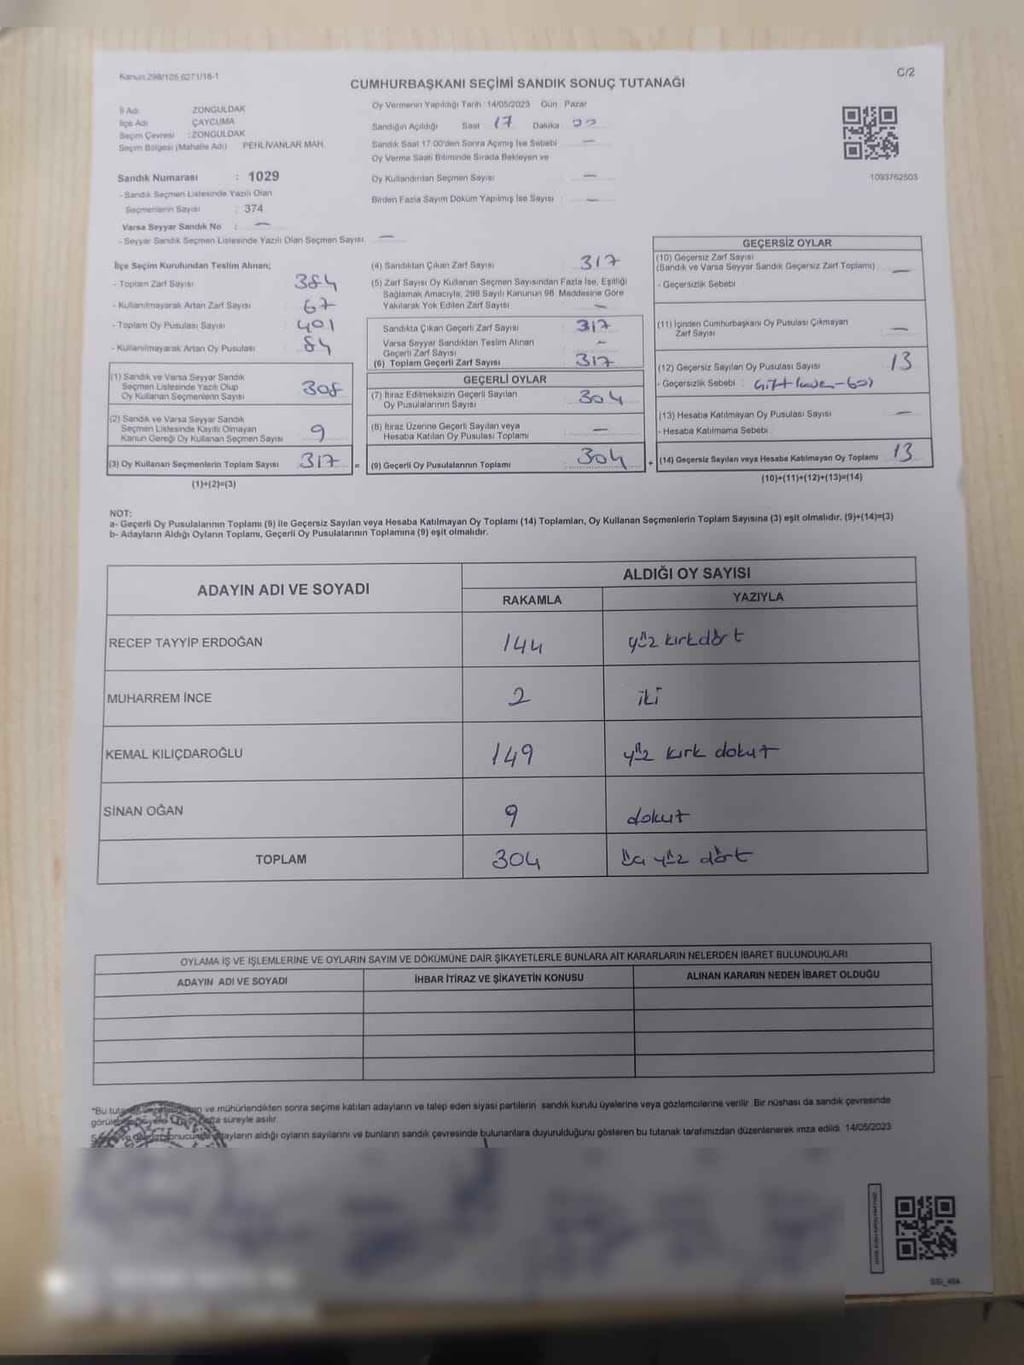 Kanun:298/105,6271/18-1
C/2
CUMHURBAŞKANI SEÇİMİ SANDIK SONUÇ TUTANAĞI
İl Adı ZONGULDAK
İlçe Adı ÇAYCUMA
Seçim Çevresi : ZONGULDAK
Seçim Bölgesi (Mahalle Adı) PEHLİVANLAR MAH.
Sandık Numarası : 1029
- Sandık Seçmen Listesinde Yazılı Olan
Seçmenlerin Sayısı : 374
Varsa Seyyar Sandık No : —
- Seyyar Sandık Seçmen Listesinde Yazılı Olan Seçmen Sayısı —
Oy Vermenin Yapıldığı Tarih :14/05/2023 Gün Pazar
Sandığın Açıldığı Saat 17 Dakika 00
Sandık Saat 17:00'den Sonra Açımış İse Sebebi —
Oy Verme Saati Bitiminde Sırada Bekleyen ve
Oy Kullandırılan Seçmen Sayısı —
Birden Fazla Sayım Döküm Yapılmış İse Sayısı —
1093762503
İlçe Seçim Kurulundan Teslim Alınan;
- Toplam Zarf Sayısı 384
- Kullanılmayarak Artan Zarf Sayısı 67
- Toplam Oy Pusulası Sayısı 401
- Kullanılmayarak Artan Oy Pusulası 84
(1) Sandık ve Varsa Seyyar Sandık
Seçmen Listesinde Yazılı Olup
Oy Kullanan Seçmenlerin Sayısı 308
(2) Sandık ve Varsa Seyyar Sandık
Seçmen Listesinde Kayıtlı Olmayan
Kanun Gereği Oy Kullanan Seçmen Sayısı 9
(3) Oy Kullanan Seçmenlerin Toplam Sayısı 317
(1)+(2)=(3)
(4) Sandıktan Çıkan Zarf Sayısı 317
(5) Zarf Sayısı Oy Kullanan Seçmen Sayısından Fazla İse, Eşitliği
Sağlamak Amacıyla, 298 Sayılı Kanunun 98. Maddesine Göre
Yakılarak Yok Edilen Zarf Sayısı —
Sandıkta Çıkan Geçerli Zarf Sayısı 317
Varsa Seyyar Sandıktan Teslim Alınan
Geçerli Zarf Sayısı —
(6) Toplam Geçerli Zarf Sayısı 317
GEÇERLİ OYLAR
(7) İtiraz Edilmeksizin Geçerli Sayılan
Oy Pusulalarının Sayısı 304
(8) İtiraz Üzerine Geçerli Sayılan veya
Hesaba Katılan Oy Pusulası Toplamı —
= (9) Geçerli Oy Pusulalarının Toplamı 304 +
GEÇERSİZ OYLAR
(10) Geçersiz Zarf Sayısı
(Sandık ve Varsa Seyyar Sandık Geçersiz Zarf Toplamı) —
- Geçersizlik Sebebi
(11) İçinden Cumhurbaşkanı Oy Pusulası Çıkmayan
Zarf Sayısı —
(12) Geçersiz Sayılan Oy Pusulası Sayısı 13
- Geçersizlik Sebebi
(13) Hesaba Katılmayan Oy Pusulası Sayısı —
- Hesaba Katılmama Sebebi
(14) Geçersiz Sayılan veya Hesaba Katılmayan Oy Toplamı 13
(10)+(11)+(12)+(13)=(14)
NOT:
a- Geçerli Oy Pusulalarının Toplamı (9) ile Geçersiz Sayılan veya Hesaba Katılmayan Oy Toplamı (14) Toplamları, Oy Kullanan Seçmenlerin Toplam Sayısına (3) eşit olmalıdır. (9)+(14)=(3)
b- Adayların Aldığı Oyların Toplamı, Geçerli Oy Pusulalarının Toplamına (9) eşit olmalıdır.
ADAYIN ADI VE SOYADI ALDIĞI OY SAYISI
RAKAMLA YAZIYLA
RECEP TAYYİP ERDOĞAN 144 yüz kırkdört
MUHARREM İNCE 2 iki
KEMAL KILIÇDAROĞLU 149 yüz kırk dokuz
SİNAN OĞAN 9 dokuz
TOPLAM 304 üç yüz dört
OYLAMA İŞ VE İŞLEMLERİNE VE OYLARIN SAYIM VE DÖKÜMÜNE DAİR ŞİKAYETLERLE BUNLARA AİT KARARLARIN NELERDEN İBARET BULUNDUKLARI
ADAYIN ADI VE SOYADI İHBAR İTİRAZ VE ŞİKAYETİN KONUSU ALINAN KARARIN NEDEN İBARET OLDUĞU
*Bu ve mühürlendikten sonra seçime katılan adayların ve talep eden siyasi partilerin sandık kurulu üyelerine veya gözlemcilerine verilir. Bir nüshası da sandık çevresinde
süreyle asılır.
adayların aldığı oyların sayılarını ve bunların sandık çevresinde bulunanlara duyurulduğunu gösteren bu tutanak tarafımızdan düzenlenerek imza edildi. 14/05/2023